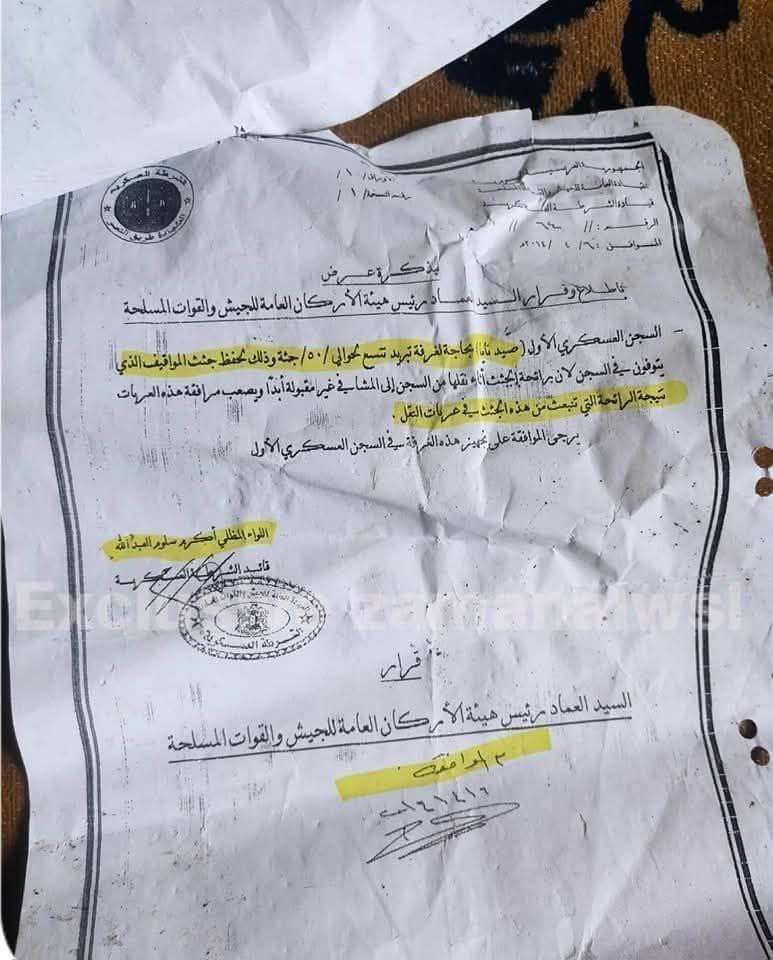 الجمهورية العربية
القيادة العامة للجيش والقوات المسلحة
قيادة الشرطة العسكرية
الرقم: // ٦٤٠ //
الموافق: ٦ / ٤ / ٢٠١٤م
/١
رقم النسخة/ ١
الشرطة العسكرية
مذكرة عرض
باطلاع وقرار السيد عماد رئيس هيئة الأركان العامة للجيش والقوات المسلحة
– السجن العسكري الأول (صيد نايا) بحاجة لغرفة تبريد تتسع لحوالي /٥٠/ جثة وذلك لحفظ جثث المواقيف الذي
يتوفون في السجن لأن رائحة الجثث أثناء نقلها من السجن إلى المشافي غير مقبولة أبداً ويصعب مرافقة هذه العربات
نتيجة الرائحة التي تنبعث من هذه الجثث في عربات النقل .
يرجى الموافقة على تجهيز هذه الغرفة في السجن العسكري الأول
اللواء المظلي أكرم سلوم العبدالله
قائد الشرطة العسكرية
الشرطة العسكرية
قرار
السيد العماد رئيس هيئة الأركان العامة للجيش والقوات المسلحة